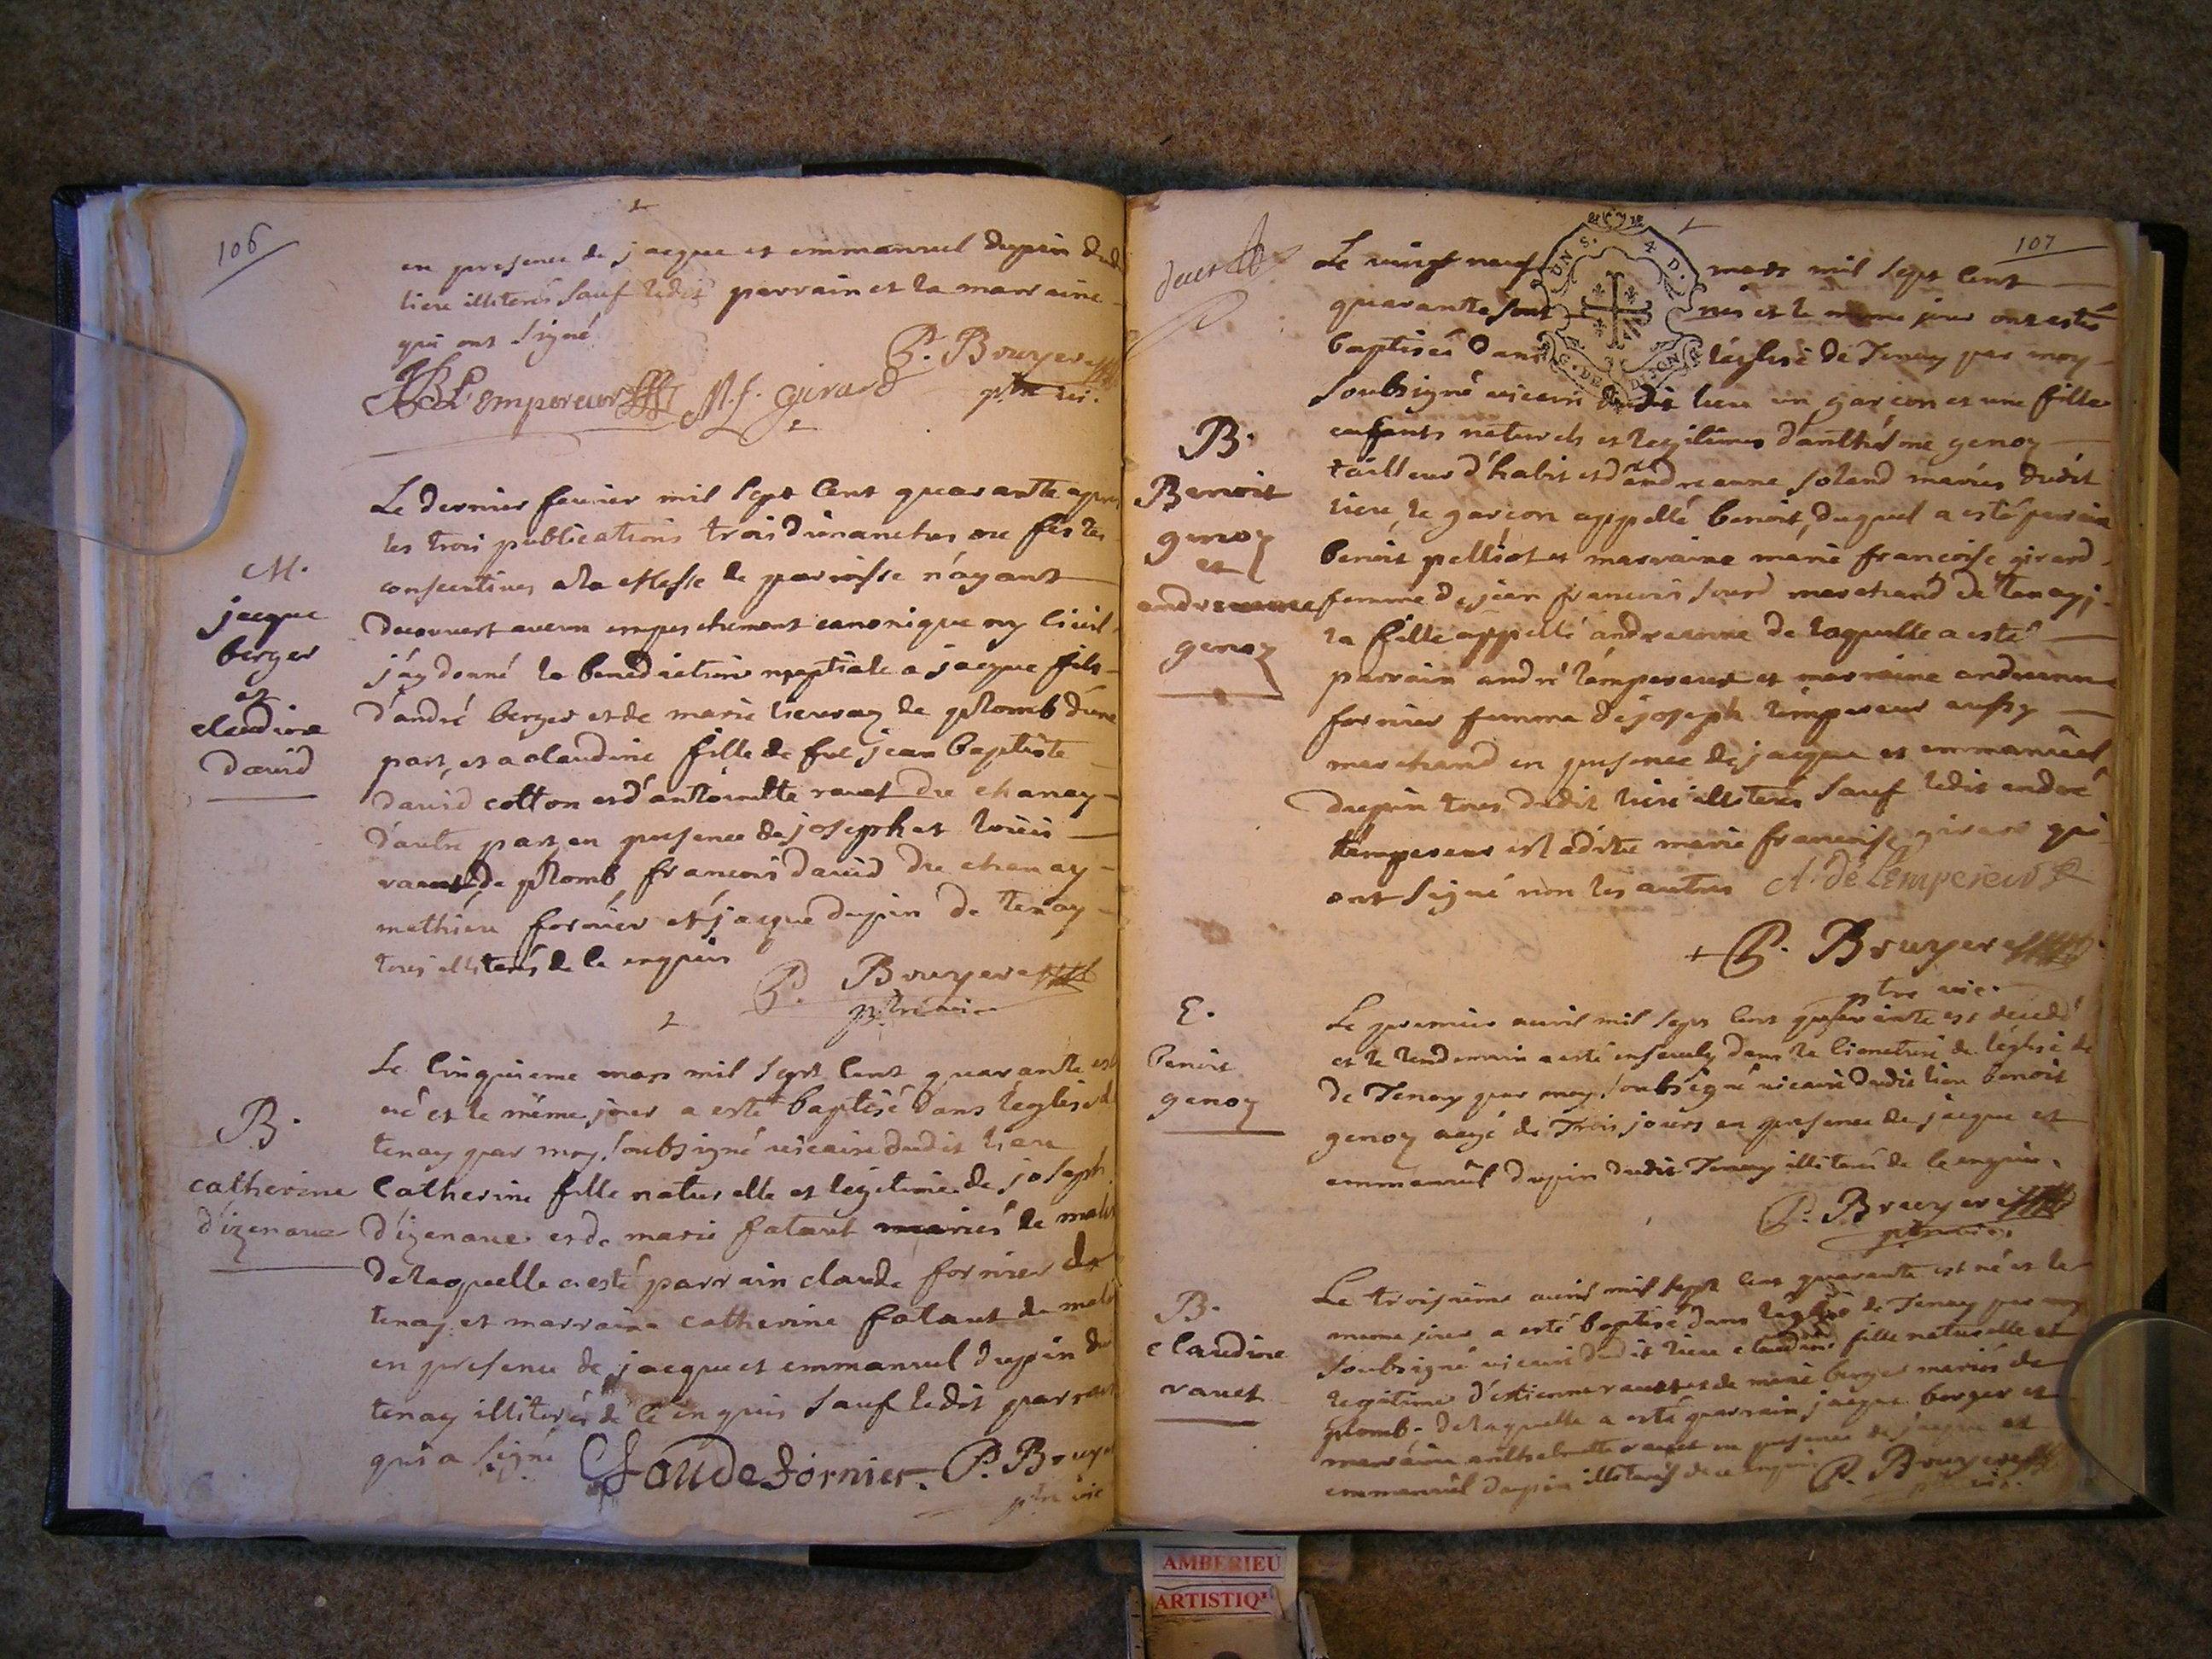 106
en presence de jacque et emmanuel dupin dud
lieu illiterés sauf ledit parrain et la marraine
qui ont signé
P. Bruyere
JB L'empereur M. f. girard ptre vic.
M.
jacque
berger
et
claudine
david
Le dernier feurier mil sept cent quarante apres
les trois publications trois dimanches ou festes
consecutives a la Messe de parroisse n'ayant
decouvert aucun empeschement canonique ny civil
j'ay donné la benediction nuptiale a jacque fils
d'andré berger et de marie lieuray de plomb d'une
part, et a claudine fille de feu jean baptiste
david cotton et d'antoinette ravet du chanay
d'autre part en presence de joseph et loüis
ravet de plomb francois david du chanay
mathieu fornier et jacque dupin de tenay
tous illiterés de ce enquis
P. Bruyere
ptre vic
B.
catherine
d'izenave
Le cinquieme mars mil sept cent quarante est
né et le même jour a esté baptisé dans l'eglise d
tenay par moy soubsigné vicaire dudit lieu
Catherine fille naturelle et legitime de joseph
d'izenave et de marie fatant mariés de malix
de laquelle a esté parrain claude fornier de
tenay et marraine catherine fatant de malix
en presence de jacque et emmanuel dupin du
tenay illiterés de ce enquis sauf ledit parrain
qui a signé Claude fornier. P. Bruyer
ptre vic
107
Le vingt neuf mars mil sept cent
quarante sont nés et le meme jour ont estés
baptisés dans l'église de Tenay par moy
soubsigné vicaire dudit lieu un garçon et une fille
enfants naturels et legitimes d'anthésme genoy
tailleur d'habit et d'andreanne soland mariés dudit
lieu, le garçon appellé benoit, duquel a esté parrain
benoit pelliot et marraine marie francoise girard
femme de jean francois sourd marchand de tenay;
la fille appellé andreanne de laquelle a esté
parrain andré lempereur et marraine andreanne
fornier femme de joseph lempereur aussy
marchand en presence de jacque et emmanuel
dupin tous dudit lieu illiterés sauf ledit andré
lempereur et ladite marie francoise girard qui
ont signé non les autres A. de L'empereur
P. Bruyere
ptre vic.
B.
Benoit
genoy
et
andreanne
genoy
E.
benoit
genoy
Le premier auril mil sept cent quarante est decedé
et le lendemain a esté enseuely dans le cimetiere de l'église de
de Tenay par moy soubsigné vicaire dudit lieu benoit
genoy aagé de trois jours en presence de jacque et
emmanuel dupin dudit Tenay illiterés de ce enquis.
P. Bruyere
ptre vic.
B.
claudine
ravet
Le troisieme auril mil sept cent quarante est né et le
meme jour a esté baptisé dans l'eglise de Tenay par moy
soubsigné vicaire dudit lieu claudine fille naturelle et
legitime d'estienne ravet et de marie berger mariés de
plomb. de laquelle a esté parrain jacque berger et
marraine anthelmette ravet en presence de jacque et
emmanuel dupin illiterés de ce enquis P. Bruyere
ptre vic.
AMBERIEU
ARTISTIQ'